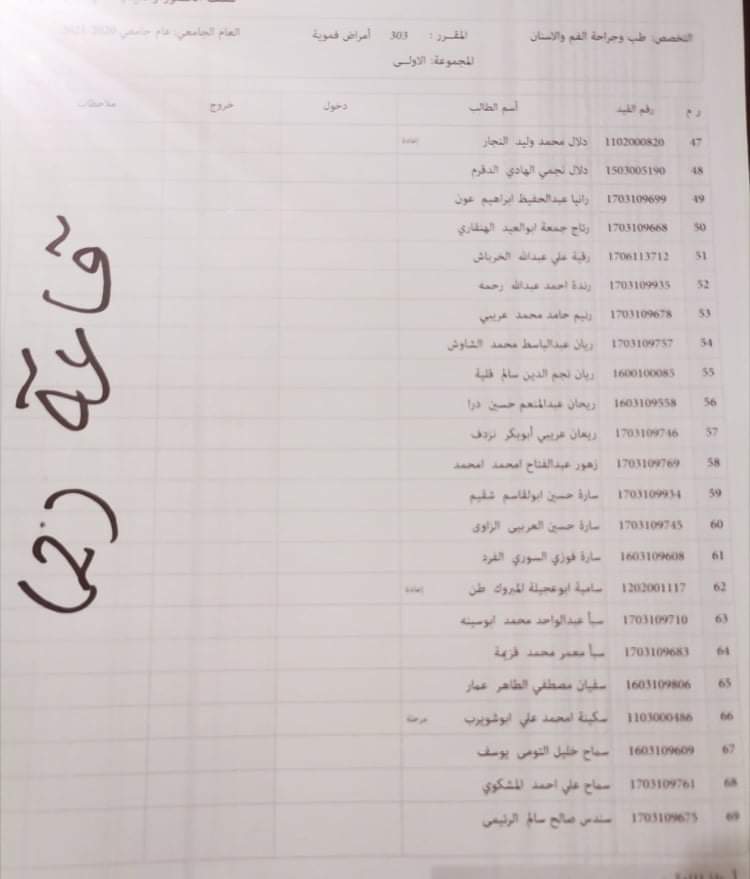 التخصص: طب وجراحة الفم والاسنان المقرر : 303 أمراض فموية العام الجامعي: عام جامعي 2020-2021
المجموعة: الاولى
ر م رقم القيد أسم الطالب دخول خروج ملاحظات
47 1102000820 دلال محمد وليد النجار إعادة
48 1503005190 دلال نجمي الهادي الدقرم
49 1703109699 رانيا عبدالحفيظ ابراهيم عون
50 1703109668 رتاج جمعة ابوالعيد الهنقاري
51 1706113712 رقية علي عبدالله الخرباش
52 1703109935 رندة احمد عبدالله رحمه
53 1703109678 رنيم حامد محمد عريبي
54 1703109757 ريان عبدالباسط محمد الشاوش
55 1600100085 ريان نجم الدين سالم قلية
56 1603109558 ريحان عبدالمنعم حسين درا
57 1703109746 ريعان عريبي أبوبكر نزدف
58 1703109769 زهور عبدالفتاح امحمد امحمد
59 1703109934 سارة حسين ابولقاسم شقيم
60 1703109745 سارة حسين العربيى الزاوى
61 1603109608 سارة فوزي السوري الفرد
62 1202001117 سامية ابوعجيلة المبروك طن إعادة
63 1703109710 سبأ عبدالواحد محمد ابوسينه
64 1703109683 سبأ معمر محمد قزيمة
65 1603109806 سفيان مصطفي الطاهر عمار
66 1103000486 سكينة امحمد علي ابوشويرب مرحلة
67 1603109609 سماح خليل التومى يوسف
68 1703109761 سماح علي احمد المشكوي
69 1703109675 سندس صالح سالم الرئيمى
قاعة (2)